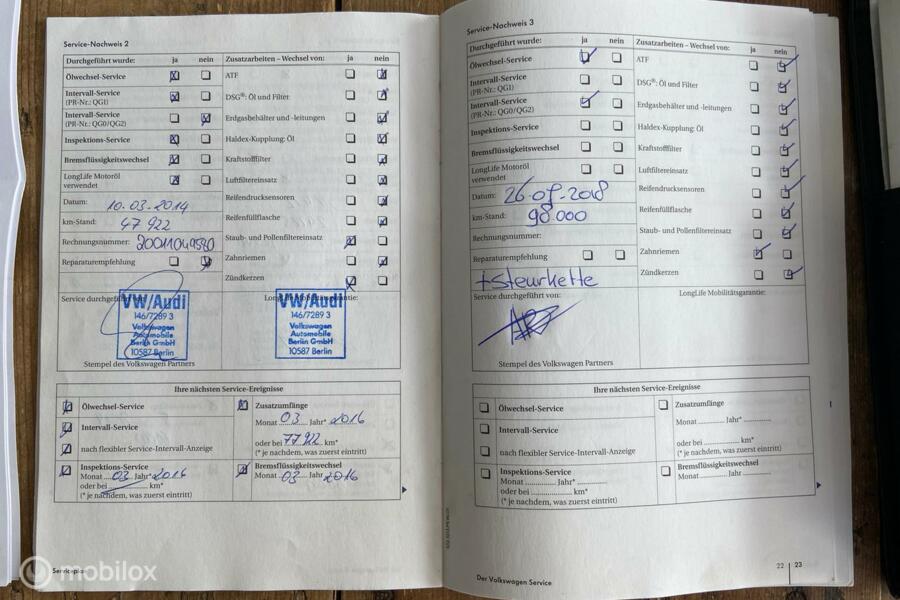 Service-Nachweis 2
Durchgeführt wurde: ja nein
Zusatzarbeiten – Wechsel von: ja nein
Ölwechsel-Service
ATF
Intervall-Service
(PR-Nr.: QG1)
DSG®: Öl und Filter
Intervall-Service
(PR-Nr.: QG0/QG2)
Erdgasbehälter und -leitungen
Inspektions-Service
Haldex-Kupplung: Öl
Bremsflüssigkeitswechsel
Kraftstofffilter
LongLife Motoröl
verwendet
Luftfiltereinsatz
Datum: 10.03.2014
Reifendrucksensoren
km-Stand: 47 922
Reifenfüllflasche
Rechnungsnummer:
Staub- und Pollenfiltereinsatz
Reparaturempfehlung
Zahnriemen
Zündkerzen
Service durchgeführt
LongLife Mobilitätsgarantie:
VW/Audi
146/7289 3
Volkswagen
Automobile
Berlin GmbH
10587 Berlin
VW/Audi
146/7289 3
Volkswagen
Automobile
Berlin GmbH
10587 Berlin
Stempel des Volkswagen Partners
Ihre nächsten Service-Ereignisse
Ölwechsel-Service
Intervall-Service
nach flexibler Service-Intervall-Anzeige
Zusatzumfänge
Monat 03 Jahr* 2016
oder bei 77 922 km*
(* je nachdem, was zuerst eintritt)
Inspektions-Service
Monat 03 Jahr* 2016
oder bei km*
(* je nachdem, was zuerst eintritt)
Bremsflüssigkeitswechsel
Monat 03 Jahr 2016
Serviceplan
Service-Nachweis 3
Durchgeführt wurde: ja nein
Zusatzarbeiten – Wechsel von: ja nein
Ölwechsel-Service
ATF
Intervall-Service
(PR-Nr.: QG1)
DSG®: Öl und Filter
Intervall-Service
(PR-Nr.: QG0/QG2)
Erdgasbehälter und -leitungen
Inspektions-Service
Haldex-Kupplung: Öl
Bremsflüssigkeitswechsel
Kraftstofffilter
LongLife Motoröl
verwendet
Luftfiltereinsatz
Datum:
Reifendrucksensoren
km-Stand: 98.000
Reifenfüllflasche
Rechnungsnummer:
Staub- und Pollenfiltereinsatz
Reparaturempfehlung
Zahnriemen
+ Steurkette
Zündkerzen
Service durchgeführt von:
LongLife Mobilitätsgarantie:
Stempel des Volkswagen Partners
Ihre nächsten Service-Ereignisse
Ölwechsel-Service
Intervall-Service
nach flexibler Service-Intervall-Anzeige
Zusatzumfänge
Monat Jahr*
oder bei km*
(* je nachdem, was zuerst eintritt)
Inspektions-Service
Monat Jahr*
oder bei km*
(* je nachdem, was zuerst eintritt)
Bremsflüssigkeitswechsel
Monat Jahr
Der Volkswagen Service
22 23
mobilox